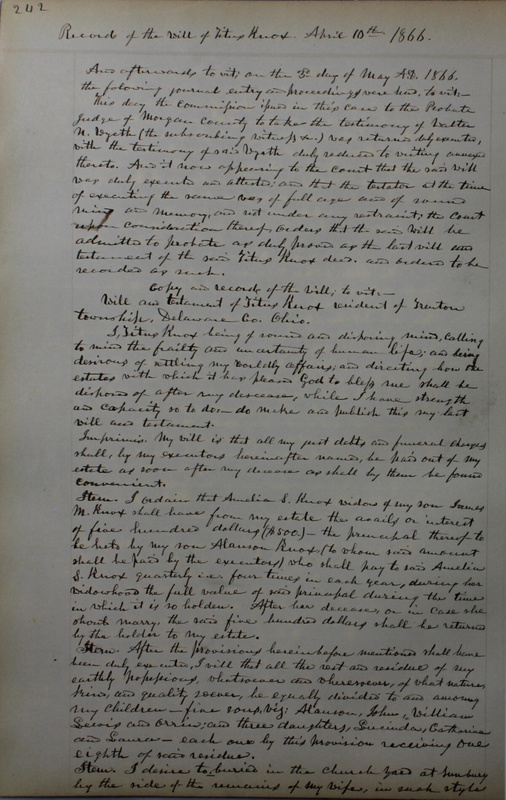 242
Record of the Will of Titus Knox. April 10th 1866.
And afterwards to wit; on the 3d day of May A.D. 1866.
the following journal entry and proceedings were had, to wit:-
This day the Commission issued in this case to the Probate
Judge of Morgan County to take the testimony of Walter
N. Wyeth (the subscribing witness &c.) was returned duly executed,
with the testimony of said Wyeth duly reduced to writing annexed
thereto. And it now appearing to the Court that the said Will
was duly executed and attested; and that the testator at the time
of executing the same was of full age and of sound
mind and memory, and not under any restraint; the Court
upon consideration thereof, orders that the said Will be
admitted to probate as duly proved as the last will and
testament of the said Titus Knox decd. and ordered to be
recorded as such.
Copy and records of the Will; to wit:-
Will and testament of Titus Knox resident of Trenton
township, Delaware Co. Ohio.
I, Titus Knox being of sound and disposing mind, calling
to mind the frailty and uncertainty of human life; and being
desirous of settling my worldly affairs; and directing how the
estates with which it has pleased God to bless me shall be
disposed of after my decease, while I have strength
and capacity so to do:- do make and publish this my last
will and testament.
Imprimis. My will is that all my just debts and funeral charges
shall, by my executors hereinafter named, be paid out of my
estate as soon after my decease as shall by them be found
convenient.
Item. I ordain that Amelia S. Knox widow of my son James
M. Knox shall have from my estate the avails or interest
of five hundred dollars ($500.) - the principal thereof to
be held by my son Alanson Knox, (to whom said amount
shall be paid by the executors) who shall pay to said Amelia
S. Knox quarterly i.e. four times in each year, during her
widowhood the full value of said principal during the time
in which it is so holden. After her decease, or in case she
should marry, the said five hundred dollars shall be returned
by the holder to my estate.
Item. After the provisions hereinbefore mentioned shall have
been duly executed, I will that all the rest and residue of my
earthly possessions, whatsoever and wheresoever, of what nature,
kind, and quality soever, be equally divided to and among
my children - five sons, viz; Alanson, John, William
Lewis and Orrin; and three daughters, Lucinda, Catharine
and Laura - each one by this provision receiving one
eighth of said residue.
Item. I desire to buried in the church yard at Sunbury
by the side of the remains of my wife, in such style